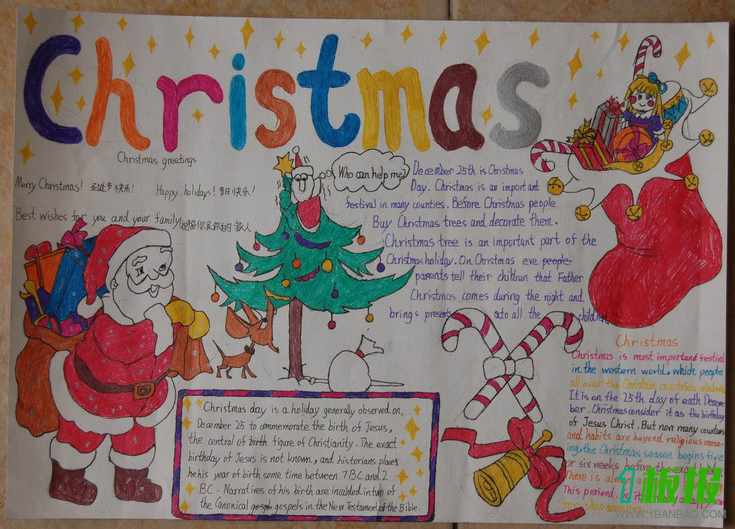 Christmas
Christmas greetings
Merry Christmas! 圣诞节快乐!
Happy holidays! 节日快乐!
Best wishes for you and your family
Who can help me?
December 25th is Christmas
Day. Christmas is an important
festival in many counties. Before Christmas people
Buy Christmas trees and decorate them.
Christmas tree is an important part of the
Christmas holiday. On Christmas eve people
parents tell their children that Father
Christmas comes during the night and
brings presents to all the children
Christmas day is a holiday generally observed on
December 25 to commemorate the birth of Jesus,
the central of birth figure of Christianity. The exact
birthday of Jesus is not known, and historians places
he his year of birth some time between 7 BC and 2
BC. Narratives of his birth are included in two of
the Canonical gospel gospels in the New Testament of the Bible.
Christmas
Christmas is most important festival
in the western world. which people
all over the Christain countries
It is on the 25th day of eath Decem-
ber. Christmas consider it as the birthday
of Jesus Christ. But now many countries
and habits are beyond religious mea-
ing. the Christmas season begins five
or six weeks before the
There is
This period.
1板报
WWW.1BANBAO.COM